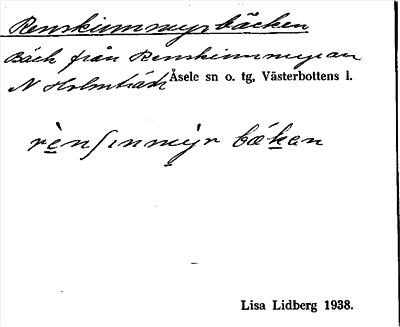 Renskinnmyrbäcken
Bäck från Renskinnmyran
N Holmträsk Åsele sn o. tg, Västerbottens l.
rènſınmy̱r bäḵen
Lisa Lidberg 1938.